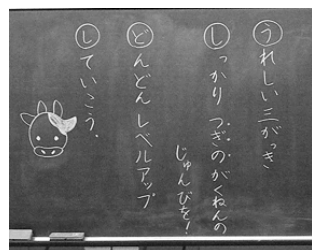 うれしい三がっき
しっかり つぎのがくねんの
じゅんびを!
どんどんレベルアップ
していこう.